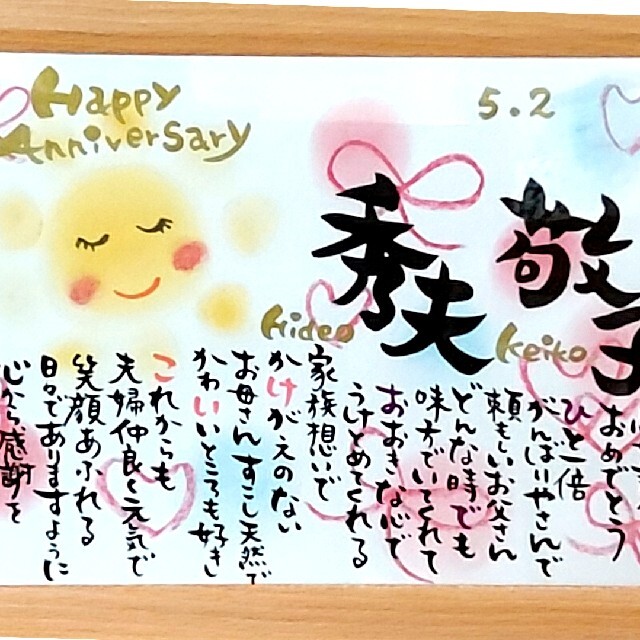 Happy
Anniversary
5.2
秀夫
Hideo
敬子
Keiko
おめでとう
ひと一倍
がんばりやさんで
頼もしいお父さん
どんな時でも
味方でいてくれて
おおきな心で
うけとめてくれる
家族想いで
かけがえのない
お母さんすこし天然で
かわいいところも好き
これからも
夫婦仲良く元気で
笑顔あふれる
日々でありますように
心から感謝を